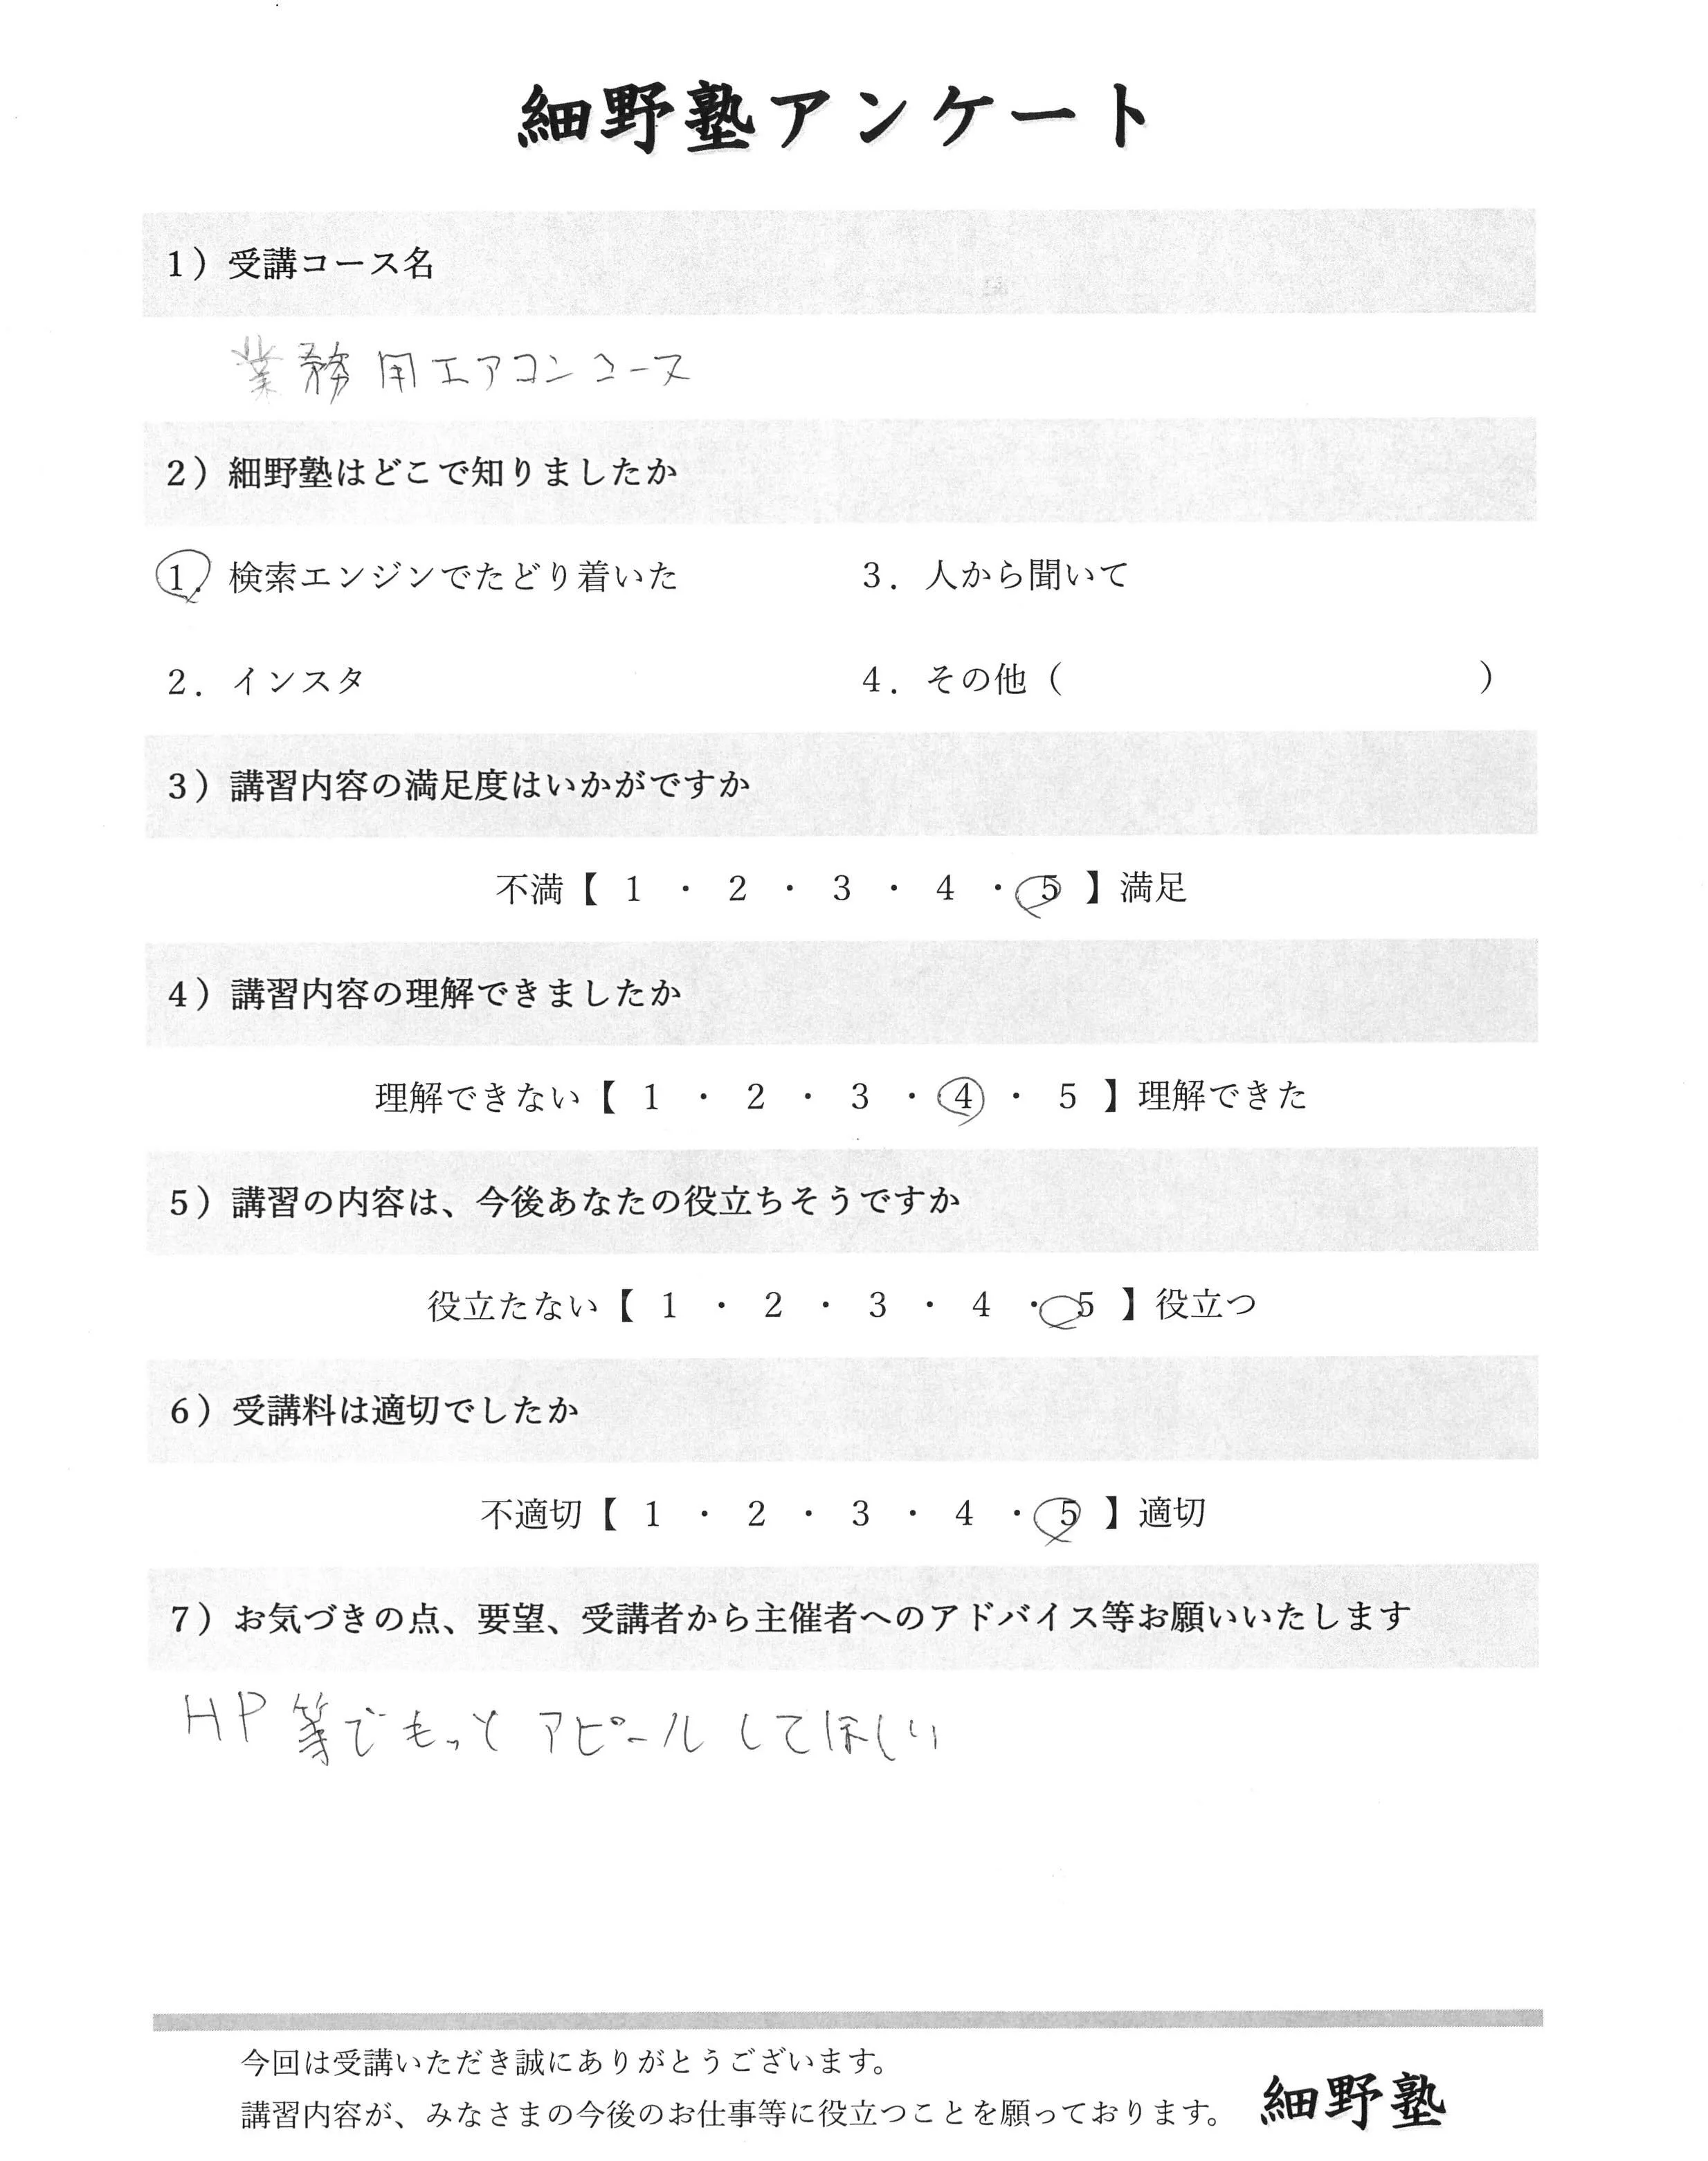 細野塾アンケート
1）受講コース名
業務用エアコンコース
2）細野塾はどこで知りましたか
1．検索エンジンでたどり着いた　3．人から聞いて
2．インスタ　4．その他（　　　　　）
3）講習内容の満足度はいかがですか
不満【 1 ・ 2 ・ 3 ・ 4 ・ 5 】満足
4）講習内容の理解できましたか
理解できない【 1 ・ 2 ・ 3 ・ 4 ・ 5 】理解できた
5）講習の内容は、今後あなたの役立ちそうですか
役立たない【 1 ・ 2 ・ 3 ・ 4 ・ 5 】役立つ
6）受講料は適切でしたか
不適切【 1 ・ 2 ・ 3 ・ 4 ・ 5 】適切
7）お気づきの点、要望、受講者から主催者へのアドバイス等お願いいたします
HP等でもっとアピールしてほしい
今回は受講いただき誠にありがとうございます。
講習内容が、みなさまの今後のお仕事等に役立つことを願っております。　細野塾